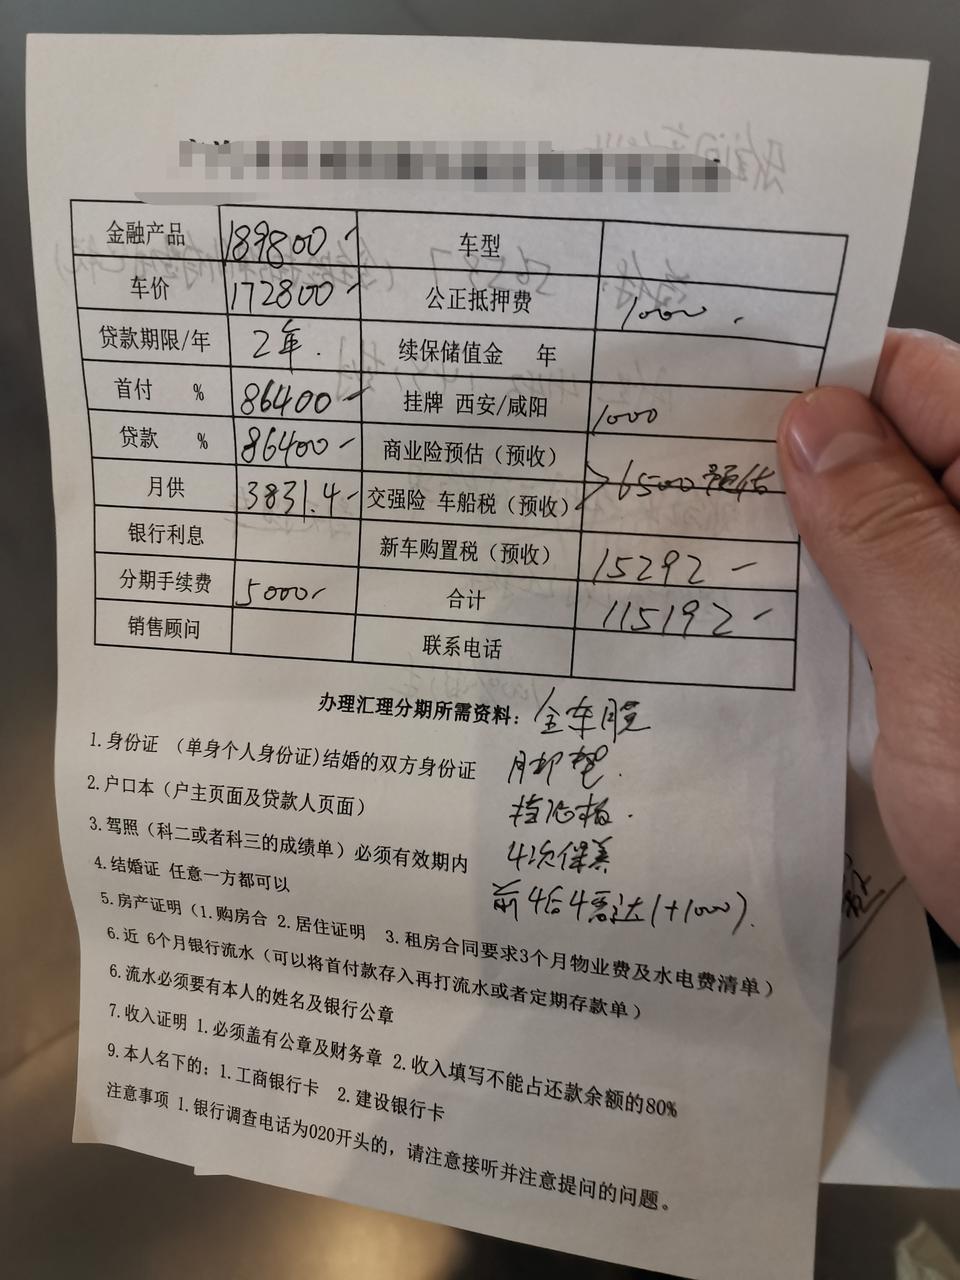 金融产品 189800 车型
车价 172800 公正抵押费 1000
贷款期限/年 2年. 续保储值金 年
首付 % 86400 挂牌 西安/咸阳 1000
贷款 % 86400 商业险预估（预收）
月供 3831.4 交强险 车船税（预收） 6500 预估
银行利息 新车购置税（预收） 15292
分期手续费 5000 合计 115192
销售顾问 联系电话
办理汇理分期所需资料：全车膜
1.身份证 （单身个人身份证)结婚的双方身份证 脚垫.
2.户口本（户主页面及贷款人页面） 挡泥板.
3.驾照（科二或者科三的成绩单）必须有效期内 4次保养
4.结婚证 任意一方都可以 前4后4雷达(+1000).
5.房产证明（1.购房合 2.居住证明 3.租房合同要求3个月物业费及水电费清单）
6.近 6个月银行流水（可以将首付款存入再打流水或者定期存款单）
6.流水必须要有本人的姓名及银行公章
7.收入证明 1.必须盖有公章及财务章 2.收入填写不能占还款余额的80%
9.本人名下的；1.工商银行卡 2.建设银行卡
注意事项 1.银行调查电话为020开头的，请注意接听并注意提问的问题。